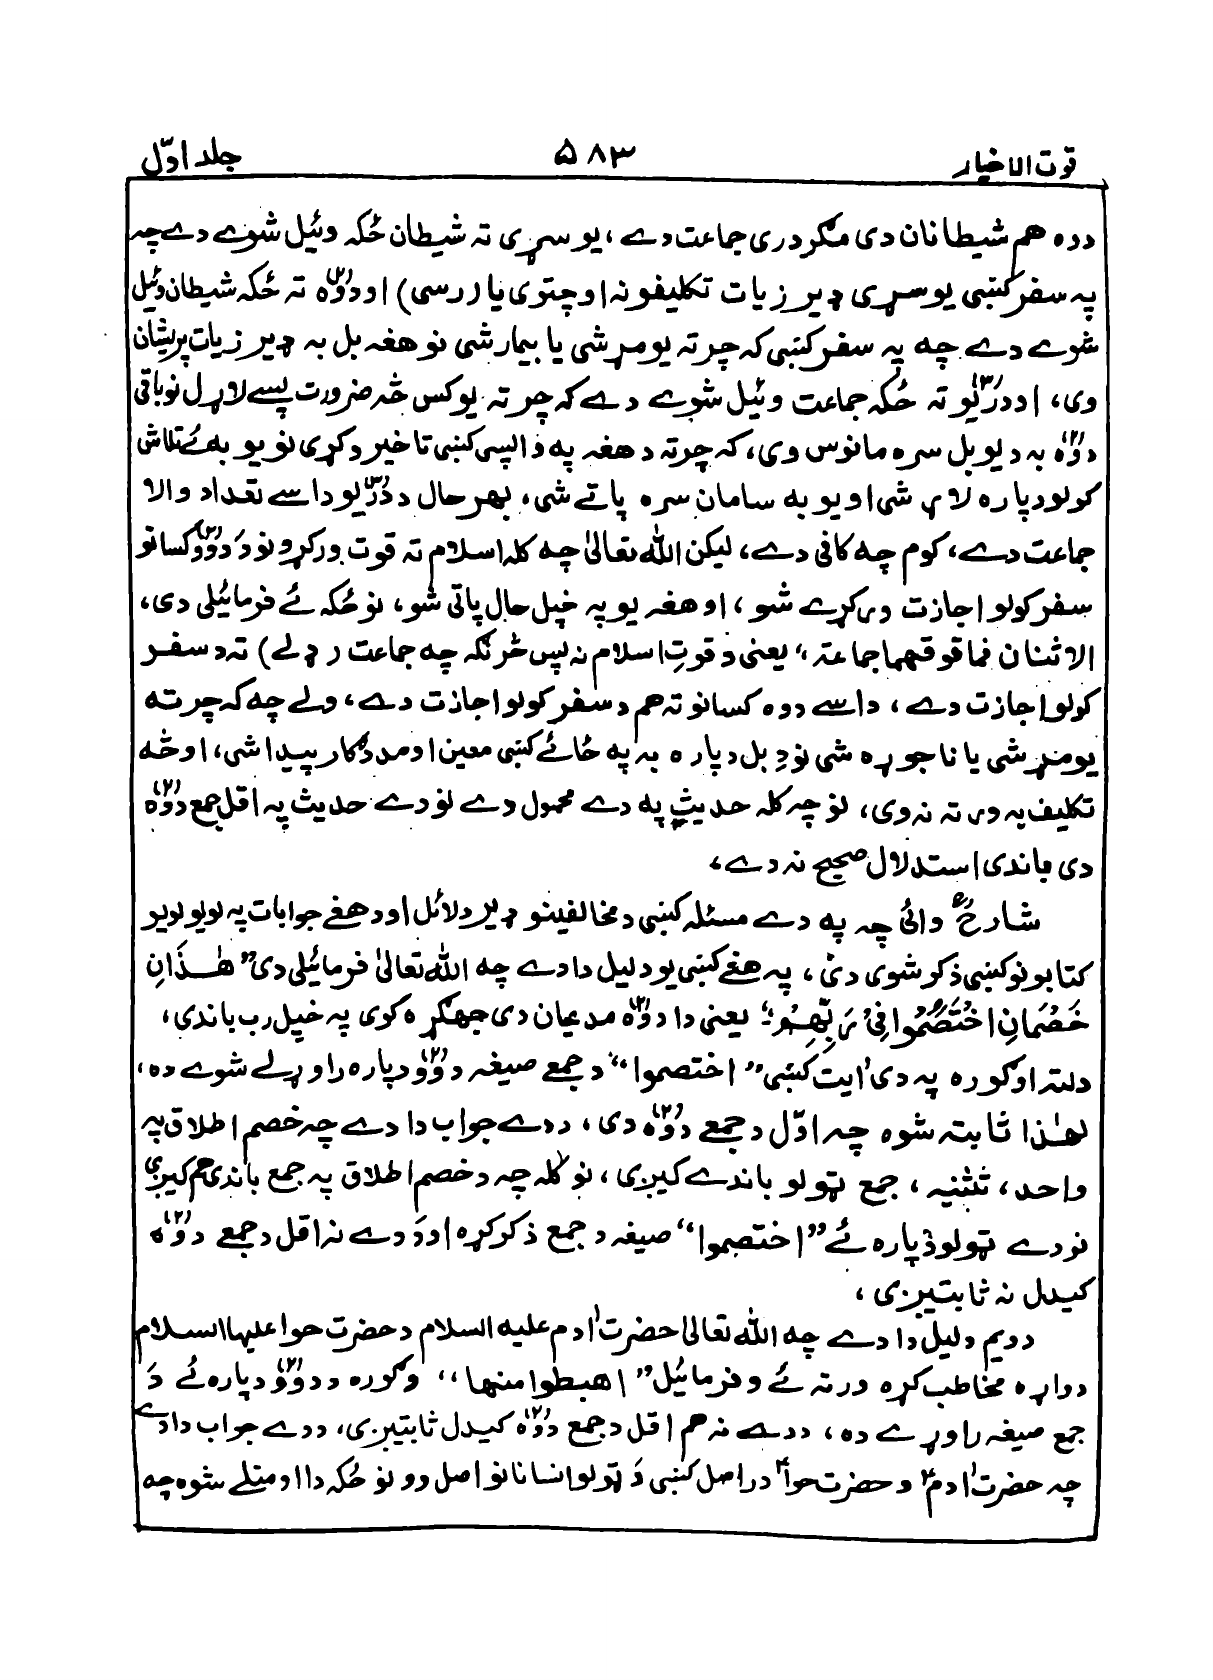 قوت الاخیار ۵۸۳ جلد اوّل
دوه هم شیطانان دی مگر دری جماعت دے، یو سړی ته شیطان ځکه وئیل شوے دے چه
په سفر کښی یو سړی ډیر زیات تکلیفونه اوچتوی یا ررسی) او دوه ته ځکه شیطان وئیل
شوے دے چه په سفر کښی که چرته یو مړ شی یا بیمار شی نو هغه بل به ډیر زیات پریشان
وی، او دریو ته ځکه جماعت وئیل شوے دے که چرته یو کس څه ضرورت پسے لاړل نو باقی
دوه به د یو بل سره مانوس وی، که چرته د هغه په واپسی کښی تاخیر وکړی نو یو به ئے تلاش
کولو دپاره لاړ شی او یو به سامان سره پاتے شی، بهر حال د دریو داسے تعداد والا
جماعت دے، کوم چه کافی دے، لیکن الله تعالیٰ چه کله اسلام ته قوت ورکړو نو دَ دوو کسانو
سفر کولو اجازت ورکړے شو، او هغه یو په خپل حال پاتی شو، نو ځکه ئے فرمائیلی دی،
الاثنان فما فوقهما جماعة،، یعنی د قوتِ اسلام نه پس څرنګه چه جماعت رډلے) ته د سفر
کولو اجازت دے، داسے دوه کسانو ته هم د سفر کولو اجازت دے، ولے چه که چرته
یو مړ شی یا ناجوړه شی نو دِ بل دپاره به په ځائے کښی معین او مددګار پیدا شی، او څه
تکلیف به ورته نه وی، نو چه کله حدیث په دے محمول دے نو دے حدیث په اقل جمع دوه
دی باندی استدلال صحیح نه دے،
شارحؒ وائی چه په دے مسئله کښی د مخالفینو ډیر دلائل او د هغے جوابات په لویو لویو
کتابونو کښی ذکر شوی دی، په هغے کښی یو دلیل دا دے چه الله تعالیٰ فرمائیلی دی ”هٰذَانِ
خَصْمَانِ اخْتَصَمُوا فِیْ رَبِّهِمْ“ یعنی دا دوه مدعیان دی جهګړه کوی په خپل رب باندی،
دلته اوګوره په دی اٰیت کښی ”اختصموا“ د جمع صیغه د دوو دپاره راوړلے شوے ده،
لهٰذا ثابته شوه چه اوّل د جمعے دوه دی، ددے جواب دا دے چه خصم اطلاق په
واحد، تثنیه، جمع ټولو باندے کیږی، نو کله چه د خصم اطلاق په جمع باندی هم کیږی
نو دے ټولو دپاره ئے ”اختصموا“ صیغه د جمع ذکر کړه او دَ دے نه اقل د جمعے دوه
کیدل نه ثابتیږی،
دویم دلیل دا دے چه الله تعالیٰ حضرت اٰدم علیه السلام د حضرت حوا علیها السلام
دواړه مخاطب کړه ورته ئے وفرمائیل ”اهبطوا منها“ وګوره د دوو دپاره ئے دَ
جمع صیغه راوړے ده، ددے نه هم اقل د جمع دوه کیدل ثابتیږی، ددے جواب دادے
چه حضرت اٰدمؑ و حضرت حواؑ دراصل کښی دَ ټولو انسانانو اصل وو نو ځکه دا اومنلے شوه چه